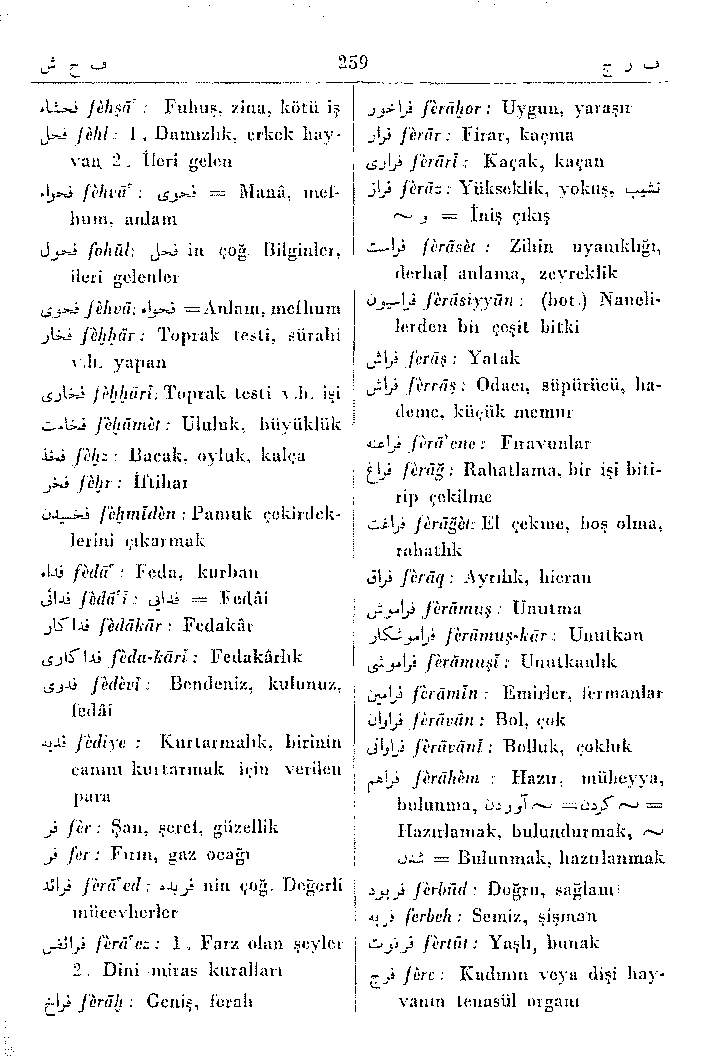 ف ح ش
259
ف ر ج
فحشاء fèhşāʾ : Fuhuş, zina, kötü iş
فحل fèhl : 1 . Damızlık, erkek hay-
van 2 . İleri gelen
فحواء fèhvāʾ : فحوى = Manâ, mef-
hum, anlam
فحول fohūl: فحل in çoğ. Bilginler,
ileri gelenler
فحوى fèhvā: فحواء =Anlam, mefhum
فخار fèḫḫār : Toprak testi, sürahi
v.b. yapan
فخارى fèḫḫārī: Toprak testi v.b. işi
فخامت fèḫāmèt : Ululuk, büyüklük
فخذ fèḫz : Bacak, oyluk, kalça
فخر fèḫr : İftihar
فخميدن fèḫmīdèn : Pamuk çekirdek-
lerini çıkarmak
فداء fèdāʾ : Feda, kurban
فدائى fèdāʾī : فدایى = Fedâi
فداكار fèdākār : Fedakâr
فداكارى fèda-kārī : Fedakârlık
فدوى fèdèvī : Bendeniz, kulunuz,
fedâi
فديه fèdiye : Kurtarmalık, birinin
canını kurtarmak için verilen
para
فر fèr : Şan, şeref, güzellik
فر fer : Fırın, gaz ocağı
فرائد fèrāʾed : فريده nin çoğ. Değerli
mücevherler
فرائض fèrāʾez : 1 . Farz olan şeyler
2 . Dini miras kuralları
فراخ fèrāḫ : Geniş, ferah
فراخور fèrāḫor : Uygun, yaraşır
فرار fèrār : Firar, kaçma
فرارى fèrārī : Kaçak, kaçan
فراز fèrāz : Yükseklik, yokuş, نشيب
و ~ = İniş çıkış
فراست fèrāsèt : Zihin uyanıklığı,
derhal anlama, zeyreklik
فراسيون fèrāsiyyūn : (bot.) Naneli-
lerden bir çeşit bitki
فراش fèrāş : Yatak
فراش fèrrāş : Odacı, süpürücü, ha-
deme, küçük memur
فراعنه fèrāʿene : Firavunlar
فراغ fèrāğ : Rahatlama, bir işi biti-
rip çekilme
فراغت fèrāğèt: El çekme, boş olma,
rahatlık
فراق fèrāq : Ayrılık, hicran
فراموش fèrāmuş : Unutma
فراموشكار fèrāmuş-kār : Unutkan
فراموشى fèrāmuşī : Unutkanlık
فرامين fèrāmīn : Emirler, fermanlar
فراوان fèrāvān : Bol, çok
فراوانى fèrāvānī : Bolluk, çokluk
فراهم fèrāhèm : Hazır, müheyya,
bulunma, آوردن ~ = كردن ~ =
Hazırlamak, bulundurmak, ~
شدن = Bulunmak, hazırlanmak
فربود fèrbūd : Doğru, sağlam
فربه ferbeh : Semiz, şişman
فرتوت fèrtūt : Yaşlı, bunak
فرج fèrc : Kadının veya dişi hay-
vanın tenasül organı